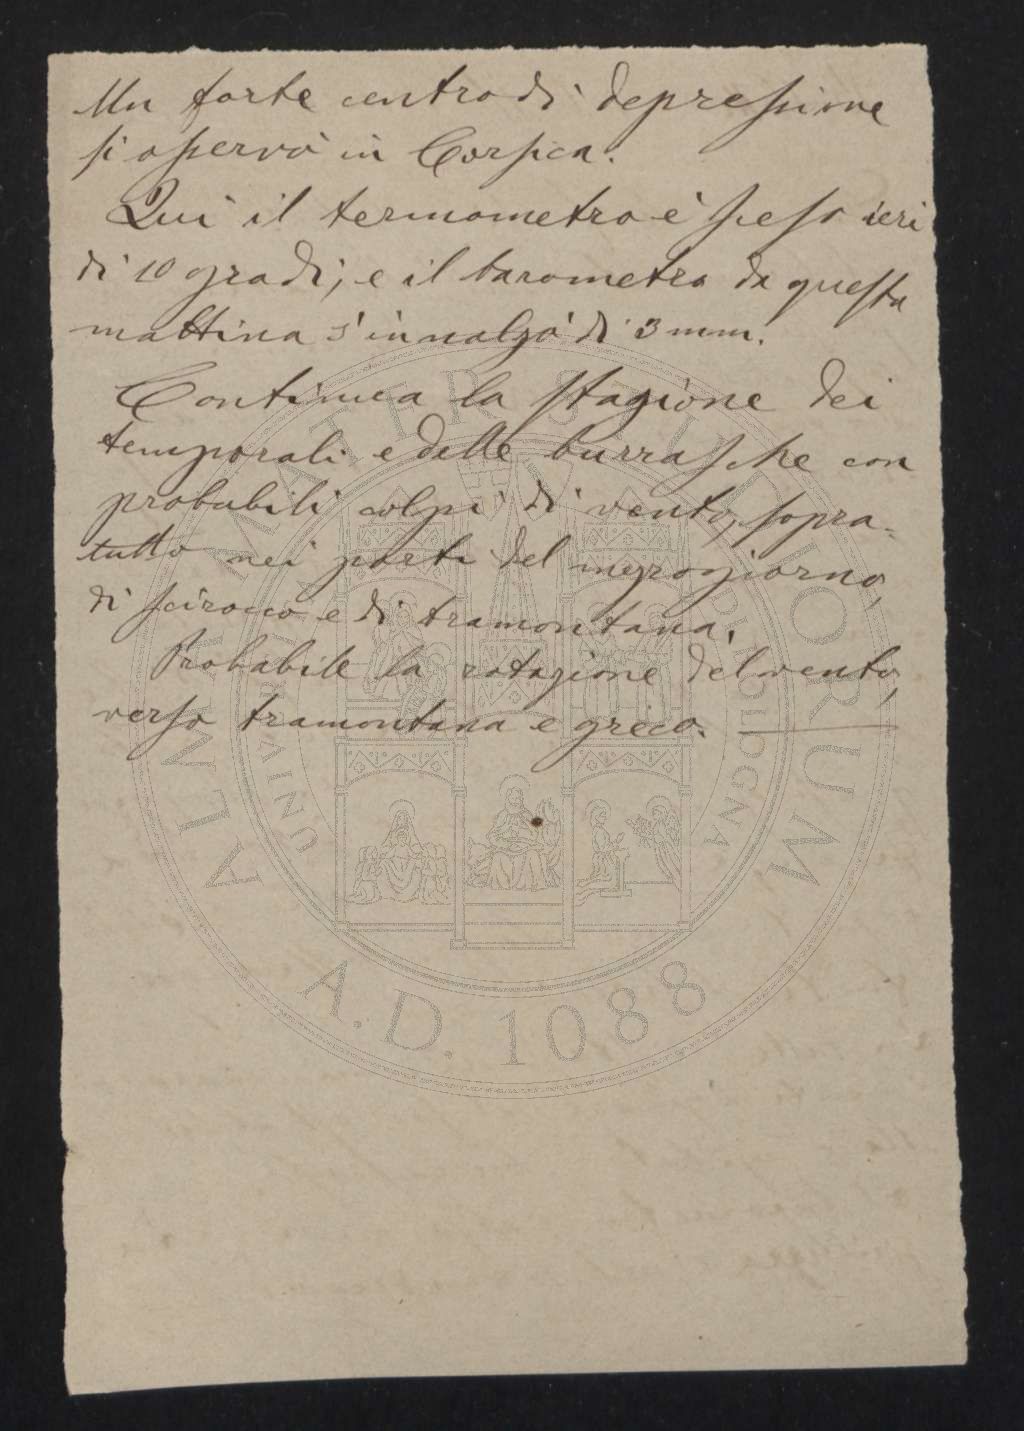 Un forte centro di depressione
si osservò in Corsica.
Qui il termometro è sceso ieri
di 10 gradi, e il barometro da questa
mattina s'innalzò di 3 mm.
Continua la stagione dei
temporali e delle burrasche con
probabili colpi di vento, sopra-
tutto nei porti del mezzogiorno,
di scirocco e di tramontana.
Probabile la rotazione del vento,
verso tramontana e greco.
ALMA MATER STUDIORUM
UNIVERSITÀ DI BOLOGNA
A.D. 1088